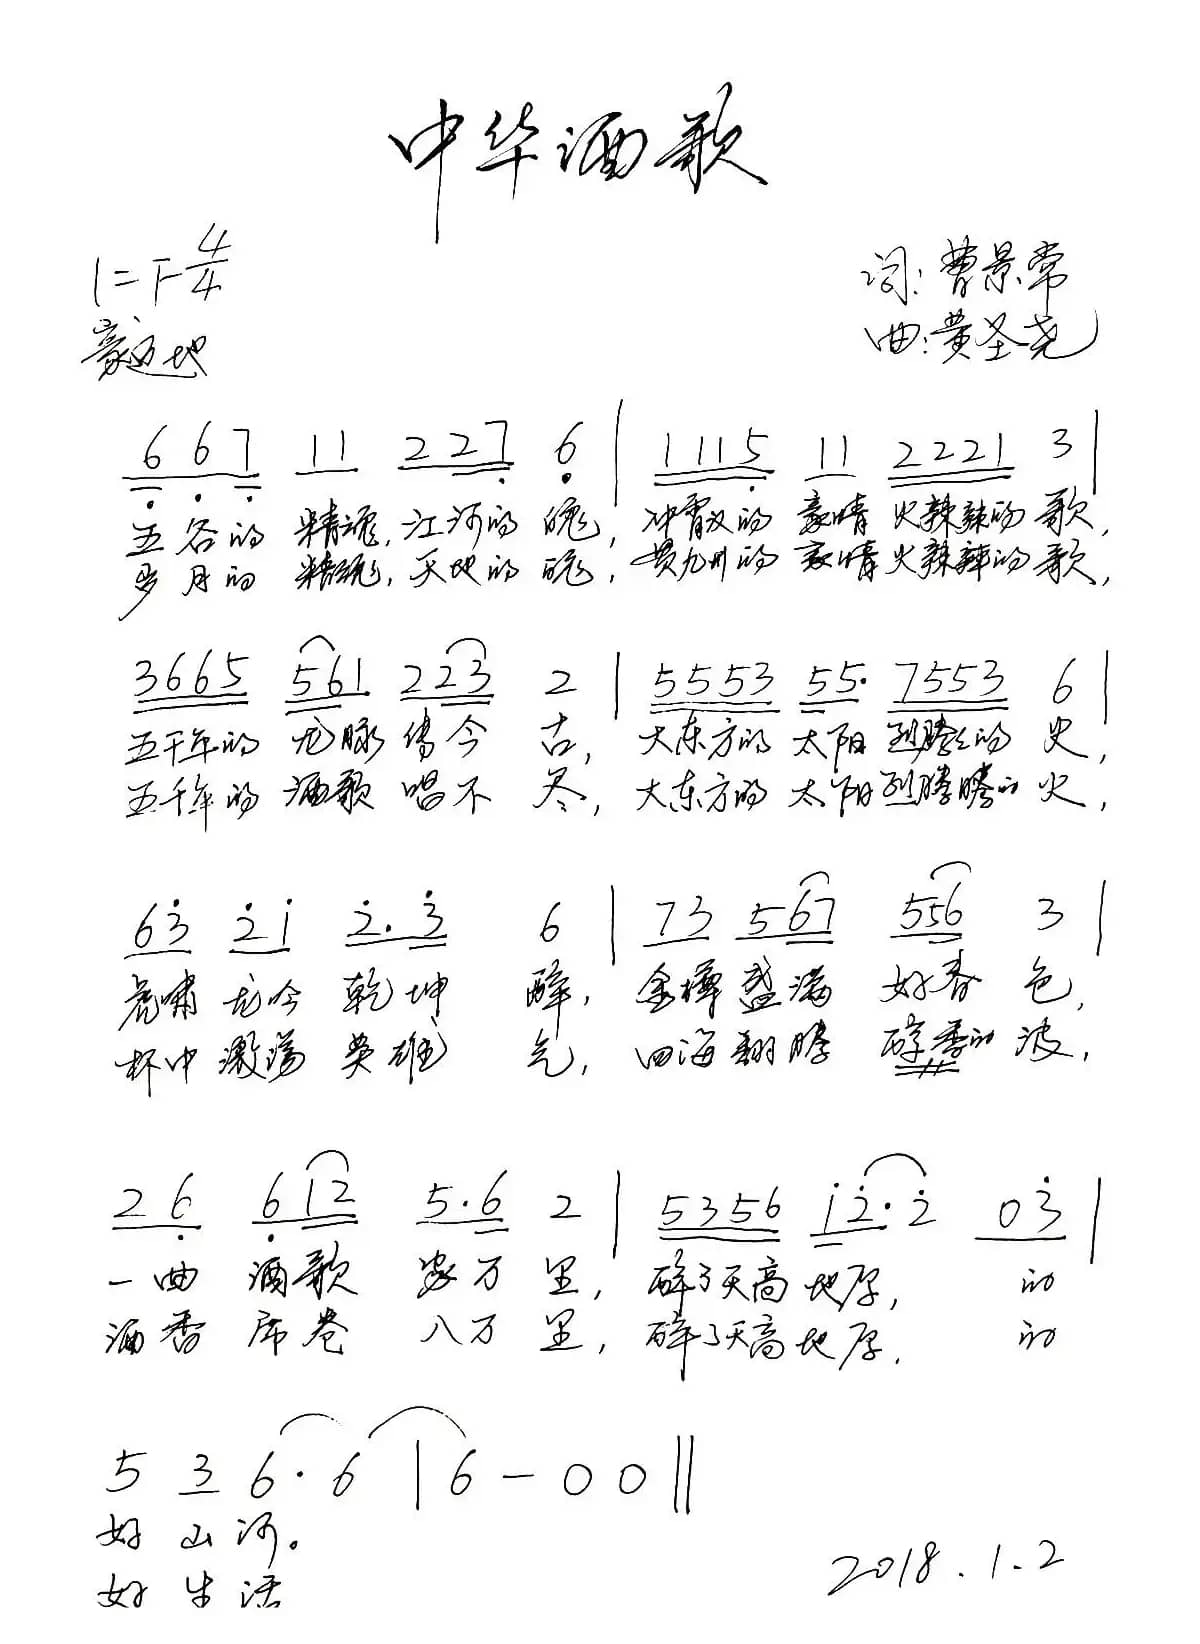 中华酒歌
1=F 4/4
词:曹景常
豪迈地
曲:黄圣尧
6 6 7 11 2 2 7 6 | 1 1 1 5 11 2 2 2 1 3 |
五谷的 精魂,江河的 魄, 冲霄汉的 豪情 火辣辣的 歌,
岁月的 精魂,天地的 魄, 贯九州的 豪情 火辣辣的 歌,
3665 561 223 2 | 5553 55· 7553 6 |
五千年的 龙脉 传今 古, 大东方的 太阳 烈腾腾的 火,
五千年的 酒歌 唱不 尽, 大东方的 太阳 烈腾腾的 火,
63 21 2·3 6 | 73 567 556 3 |
虎啸 龙吟 乾坤 醉, 金樽 盛满 好春 色,
杯中 激荡 英雄 气, 四海 翻腾 醇香的 波,
26 612 5·6 2 | 5356 12·2 03 |
一曲 酒歌 家万 里, 醉了天高 地厚, 的
酒香 席卷 八万 里, 醉了天高 地厚, 的
5 3 6·6 | 6 - 0 0 ||
好山河。
好生活
2018.1.2